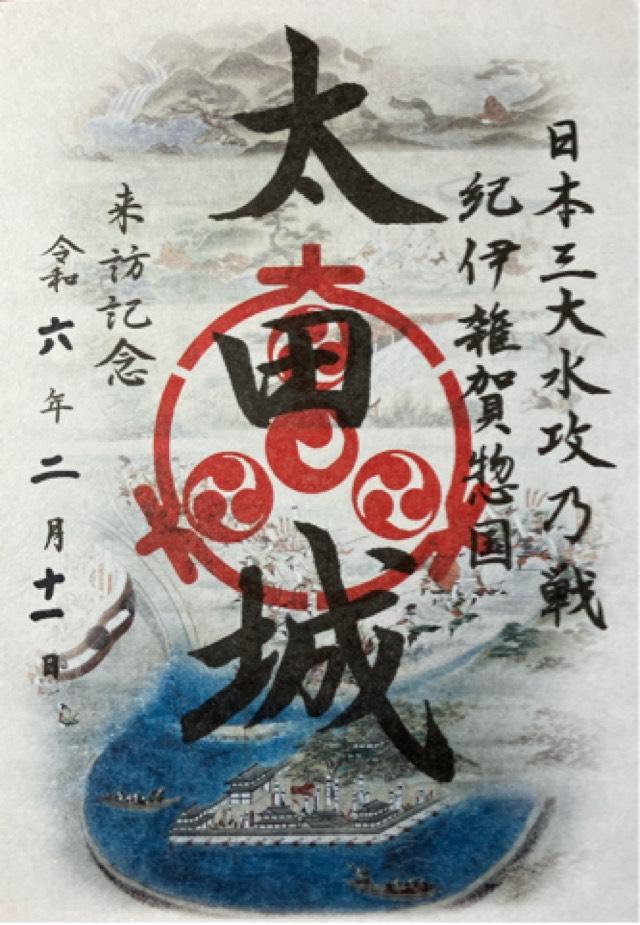 日本三大水攻乃戦
紀伊雑賀惣国
太田城
来訪記念
令和六年二月十一日